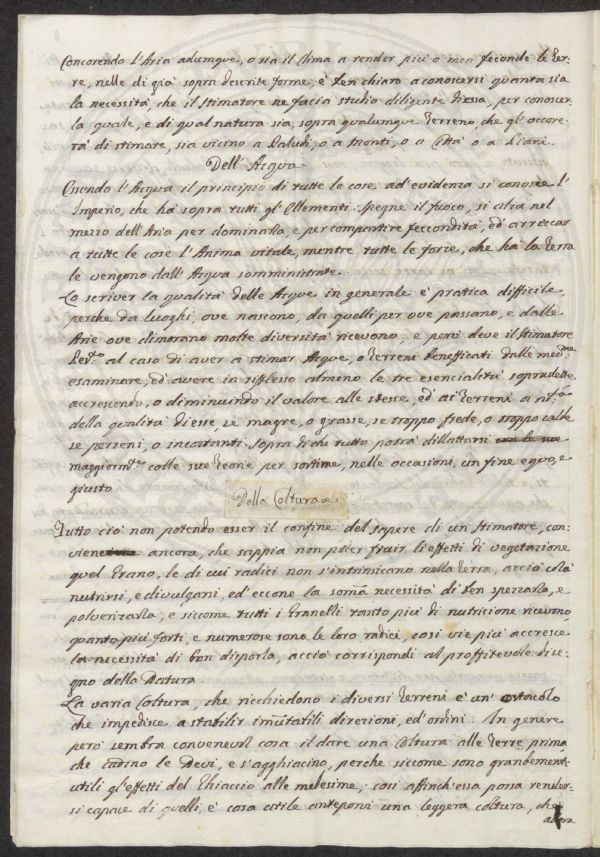 Concorendo l'Aria adunque, o sia il Clima a render più o men feconde le Ter:
re, nelle di già sopra descritte forme; è ben chiaro a conoscersi quanta sia
la necessità, che il Stimatore ne facia studio diligente d'essa, per conoscer
la quale, e di qual natura sia, sopra qualunque Terreno, che gl'occore:
rà di stimare, sia vicino a Paludi, o a Monti, o a Città o a Piani.
Dell'Acqua
Essendo l'Acqua il principio di tutte le cose ad evidenza si conosce l'
Imperio, che hà sopra tutti gl'Ellementi. Spegne il fuoco, si alza nel
mezzo dell'Aria per dominarla, e per compartire feccondità, ed arreccar
a tutte le cose l'Anima vitale, mentre tutte le forze, che hà la Terra
le vengono dall'Acqua somministrate.
Lo scriver la qualità delle Acque in generale è pratica difficile,
perche da luoghi ove nascono, da quelli per ove passano, e dalle
Arie ove dimorano molte diversità ricevono; e però deve il Stimatore
al caso di aver a stimar Acque, o Terreni benefficati dalle med.me
esaminare, ed avere in riflesso almeno le tre esencialità sopradette
accrescendo, o diminuindo il valore alle stesse, ed ai Terreni a
della qualità d'esse, se magre, o grasse, se troppo frede, o troppo calde
se perreni, o incostanti. Sopra di che tutto potrà dillattarsi
maggiorm.te colle sue Teorie per sortirne, nelle occasioni, un fine equo, e
giusto.
Della Coltura
Tutto ciò non potendo esser il confine del sapere di un Stimatore, con:
viene ancora, che sappia non poter fruir li effetti di vegetazione
quel Grano, le di cui radici non s'intrinsicano nella Terra, acciò colà
nutrirsi, e divulgarsi, ed eccone la somma necessità di ben spezzarla, e
polverizarla, e siccome tutti i Granelli tanto più di nutricione ricevono
quanto più forti, e numerose sono le loro radici, così vie più accresce
la necessità di ben disporla, acciò corrispondi al proffitevole dise:
gno della Natura.
La varia Coltura, che ricchiedono i diversi Terreni è un ostacolo
che impedisce a stabilir immutabili direzioni, ed'ordini. In genere
però sembra convenevol cosa il dare una Coltura alle Terre prima
che cadino le Nevi, e s'agghiacino, perche siccome sono grandemente
utili gl'effetti del Ghiaccio alle medesime; così affinch'essa possa render:
si capace di quelli, è cosa utile anteponi una leggera coltura, che
allora